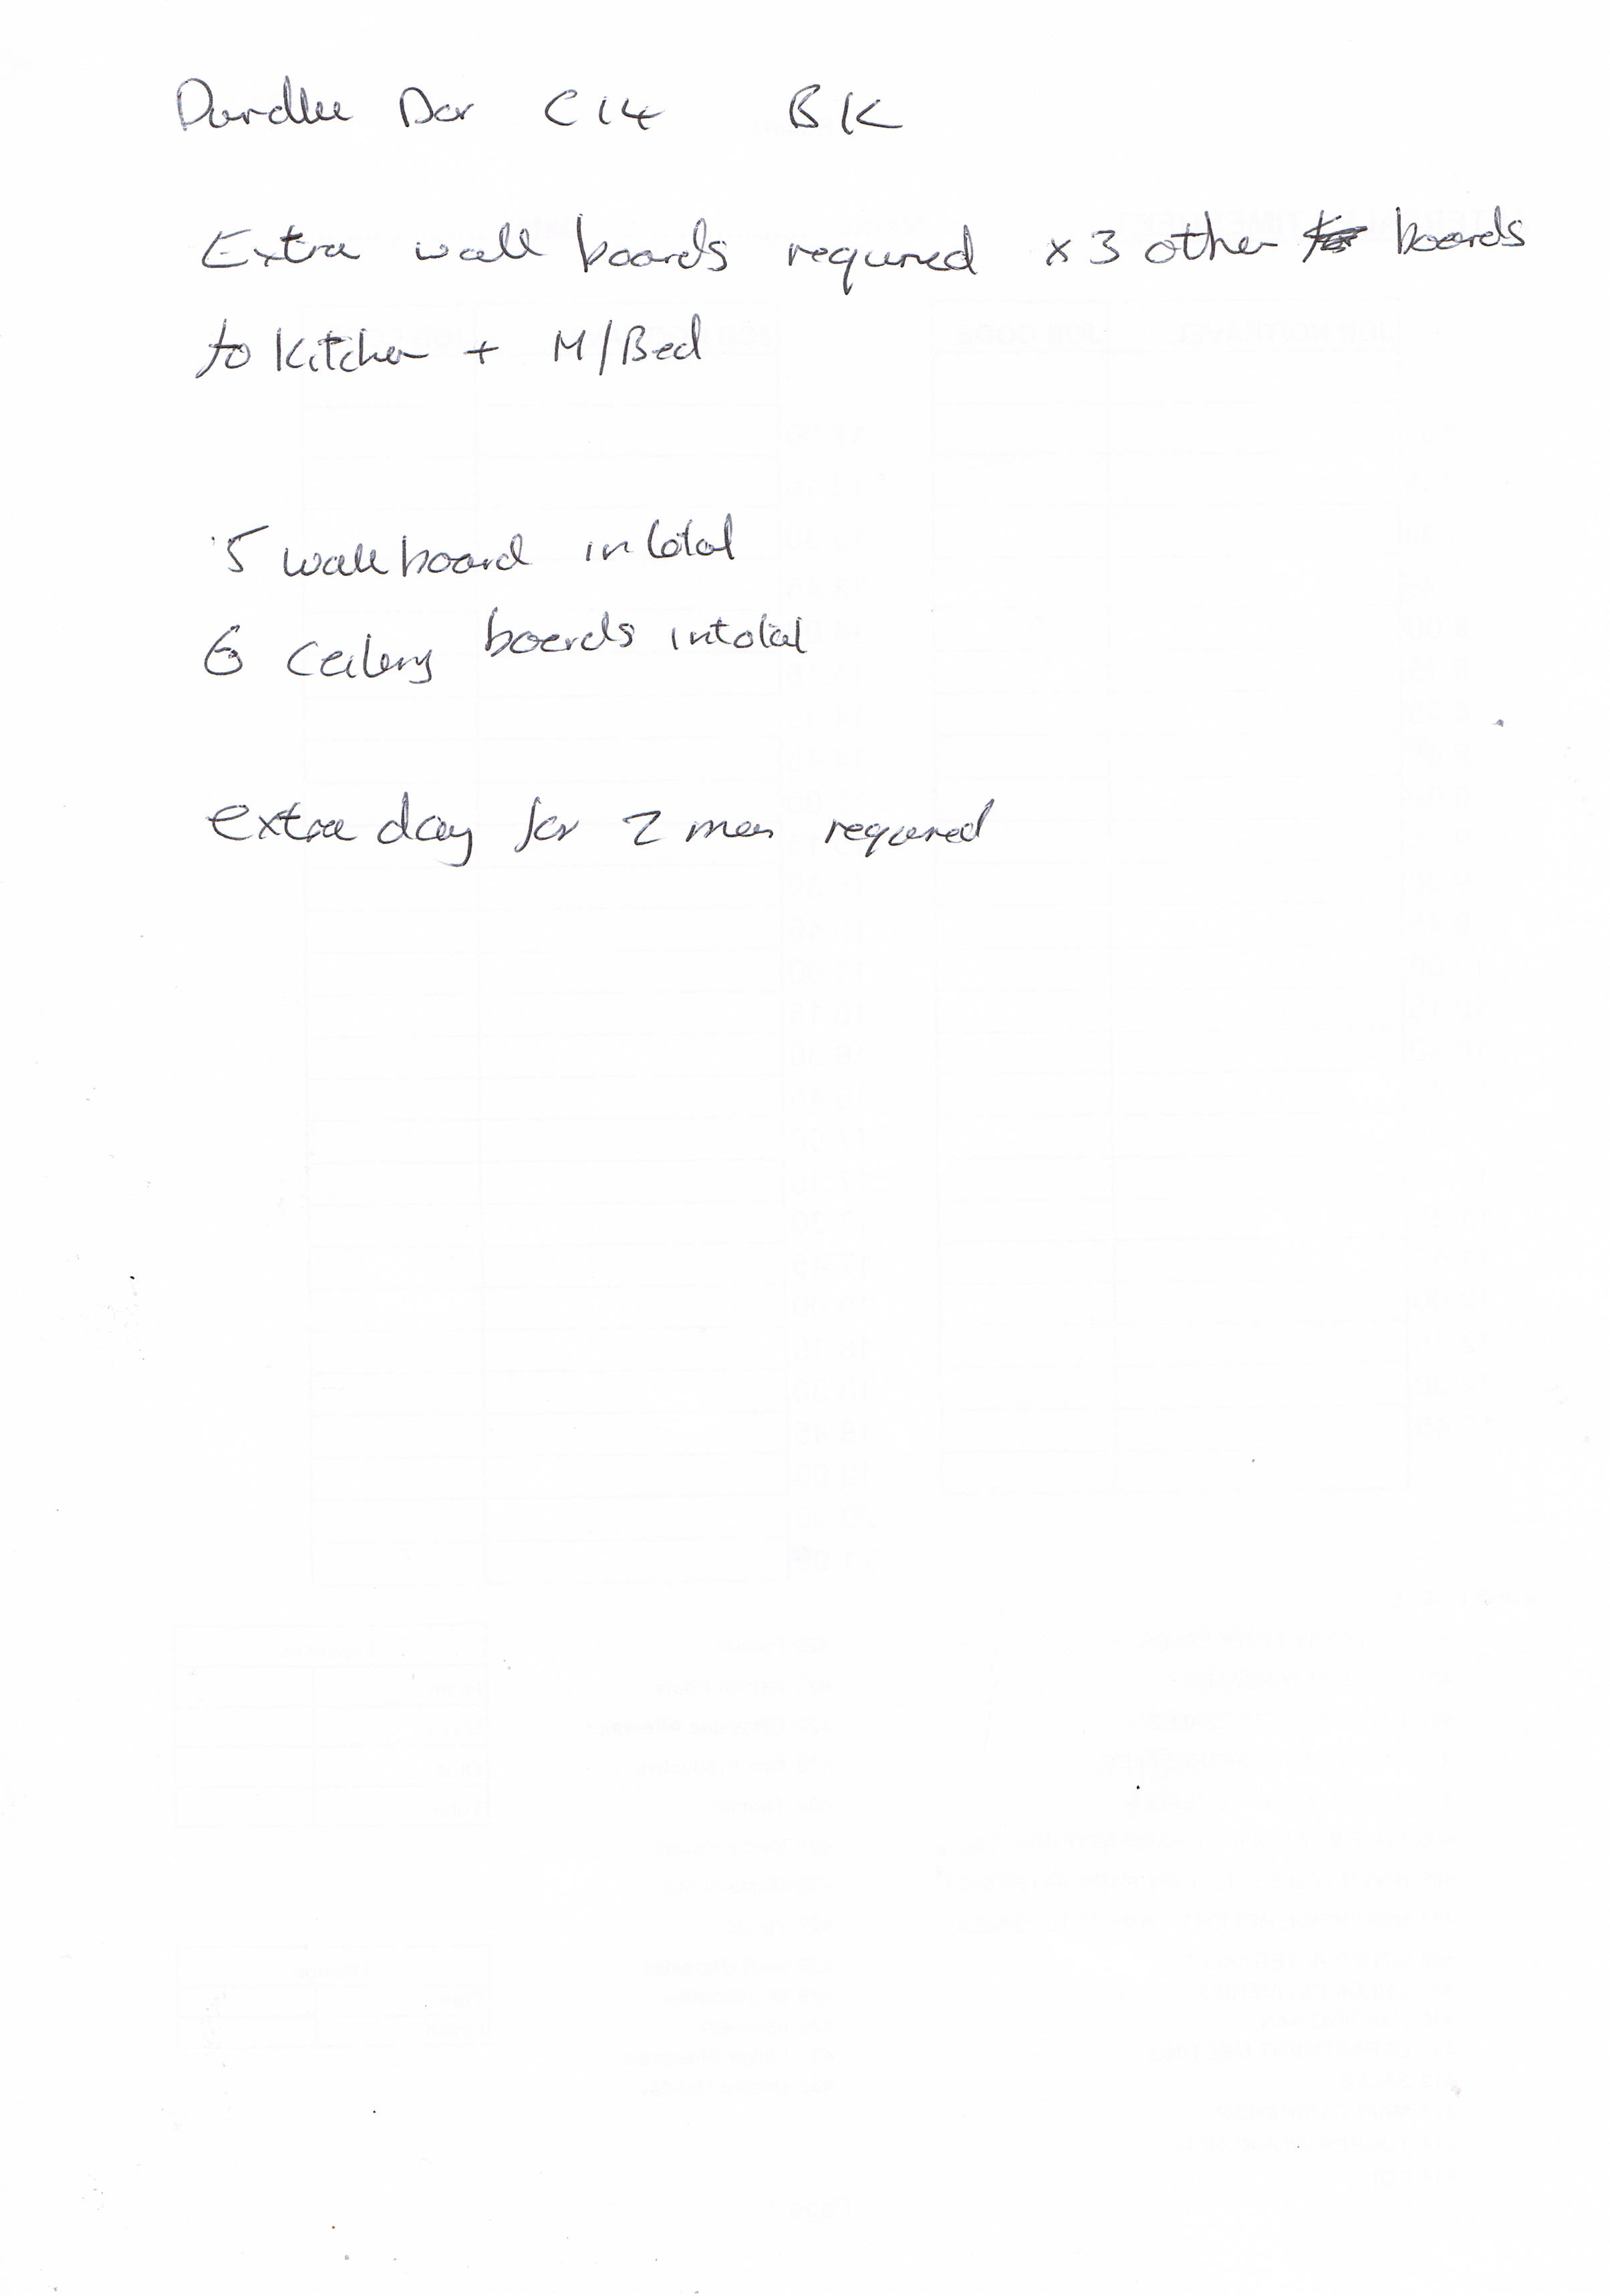 Durdle Dor C14 BK
Extra wall boards required x 3 other boards
to Kitchen + M/Bed
5 wall board in total
6 Ceiling boards in total
extra day for 2 men required